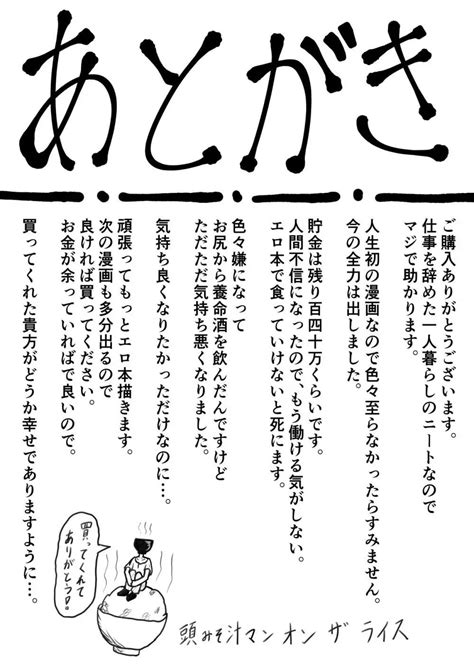 あとがき
ご購入ありがとうございます。
仕事を辞めた一人暮らしのニートなので
マジで助かります。
人生初の漫画なので色々至らなかったらすみません。
今の全力は出しました。
貯金は残り百四十万くらいです。
人間不信になったので、もう働ける気がしない。
エロ本で食っていけないと死にます。
色々嫌になって
お尻から養命酒を飲んだんですけど
ただただ気持ち悪くなりました。
気持ち良くなりたかっただけなのに…。
頑張ってもっとエロ本描きます。
次の漫画も多分出るので
良ければ買ってください。
お金が余っていればで良いので。
買ってくれた貴方がどうか幸せでありますように…。
買ってくれて
ありがとう!
頭みそ汁マン オン ザ ライス